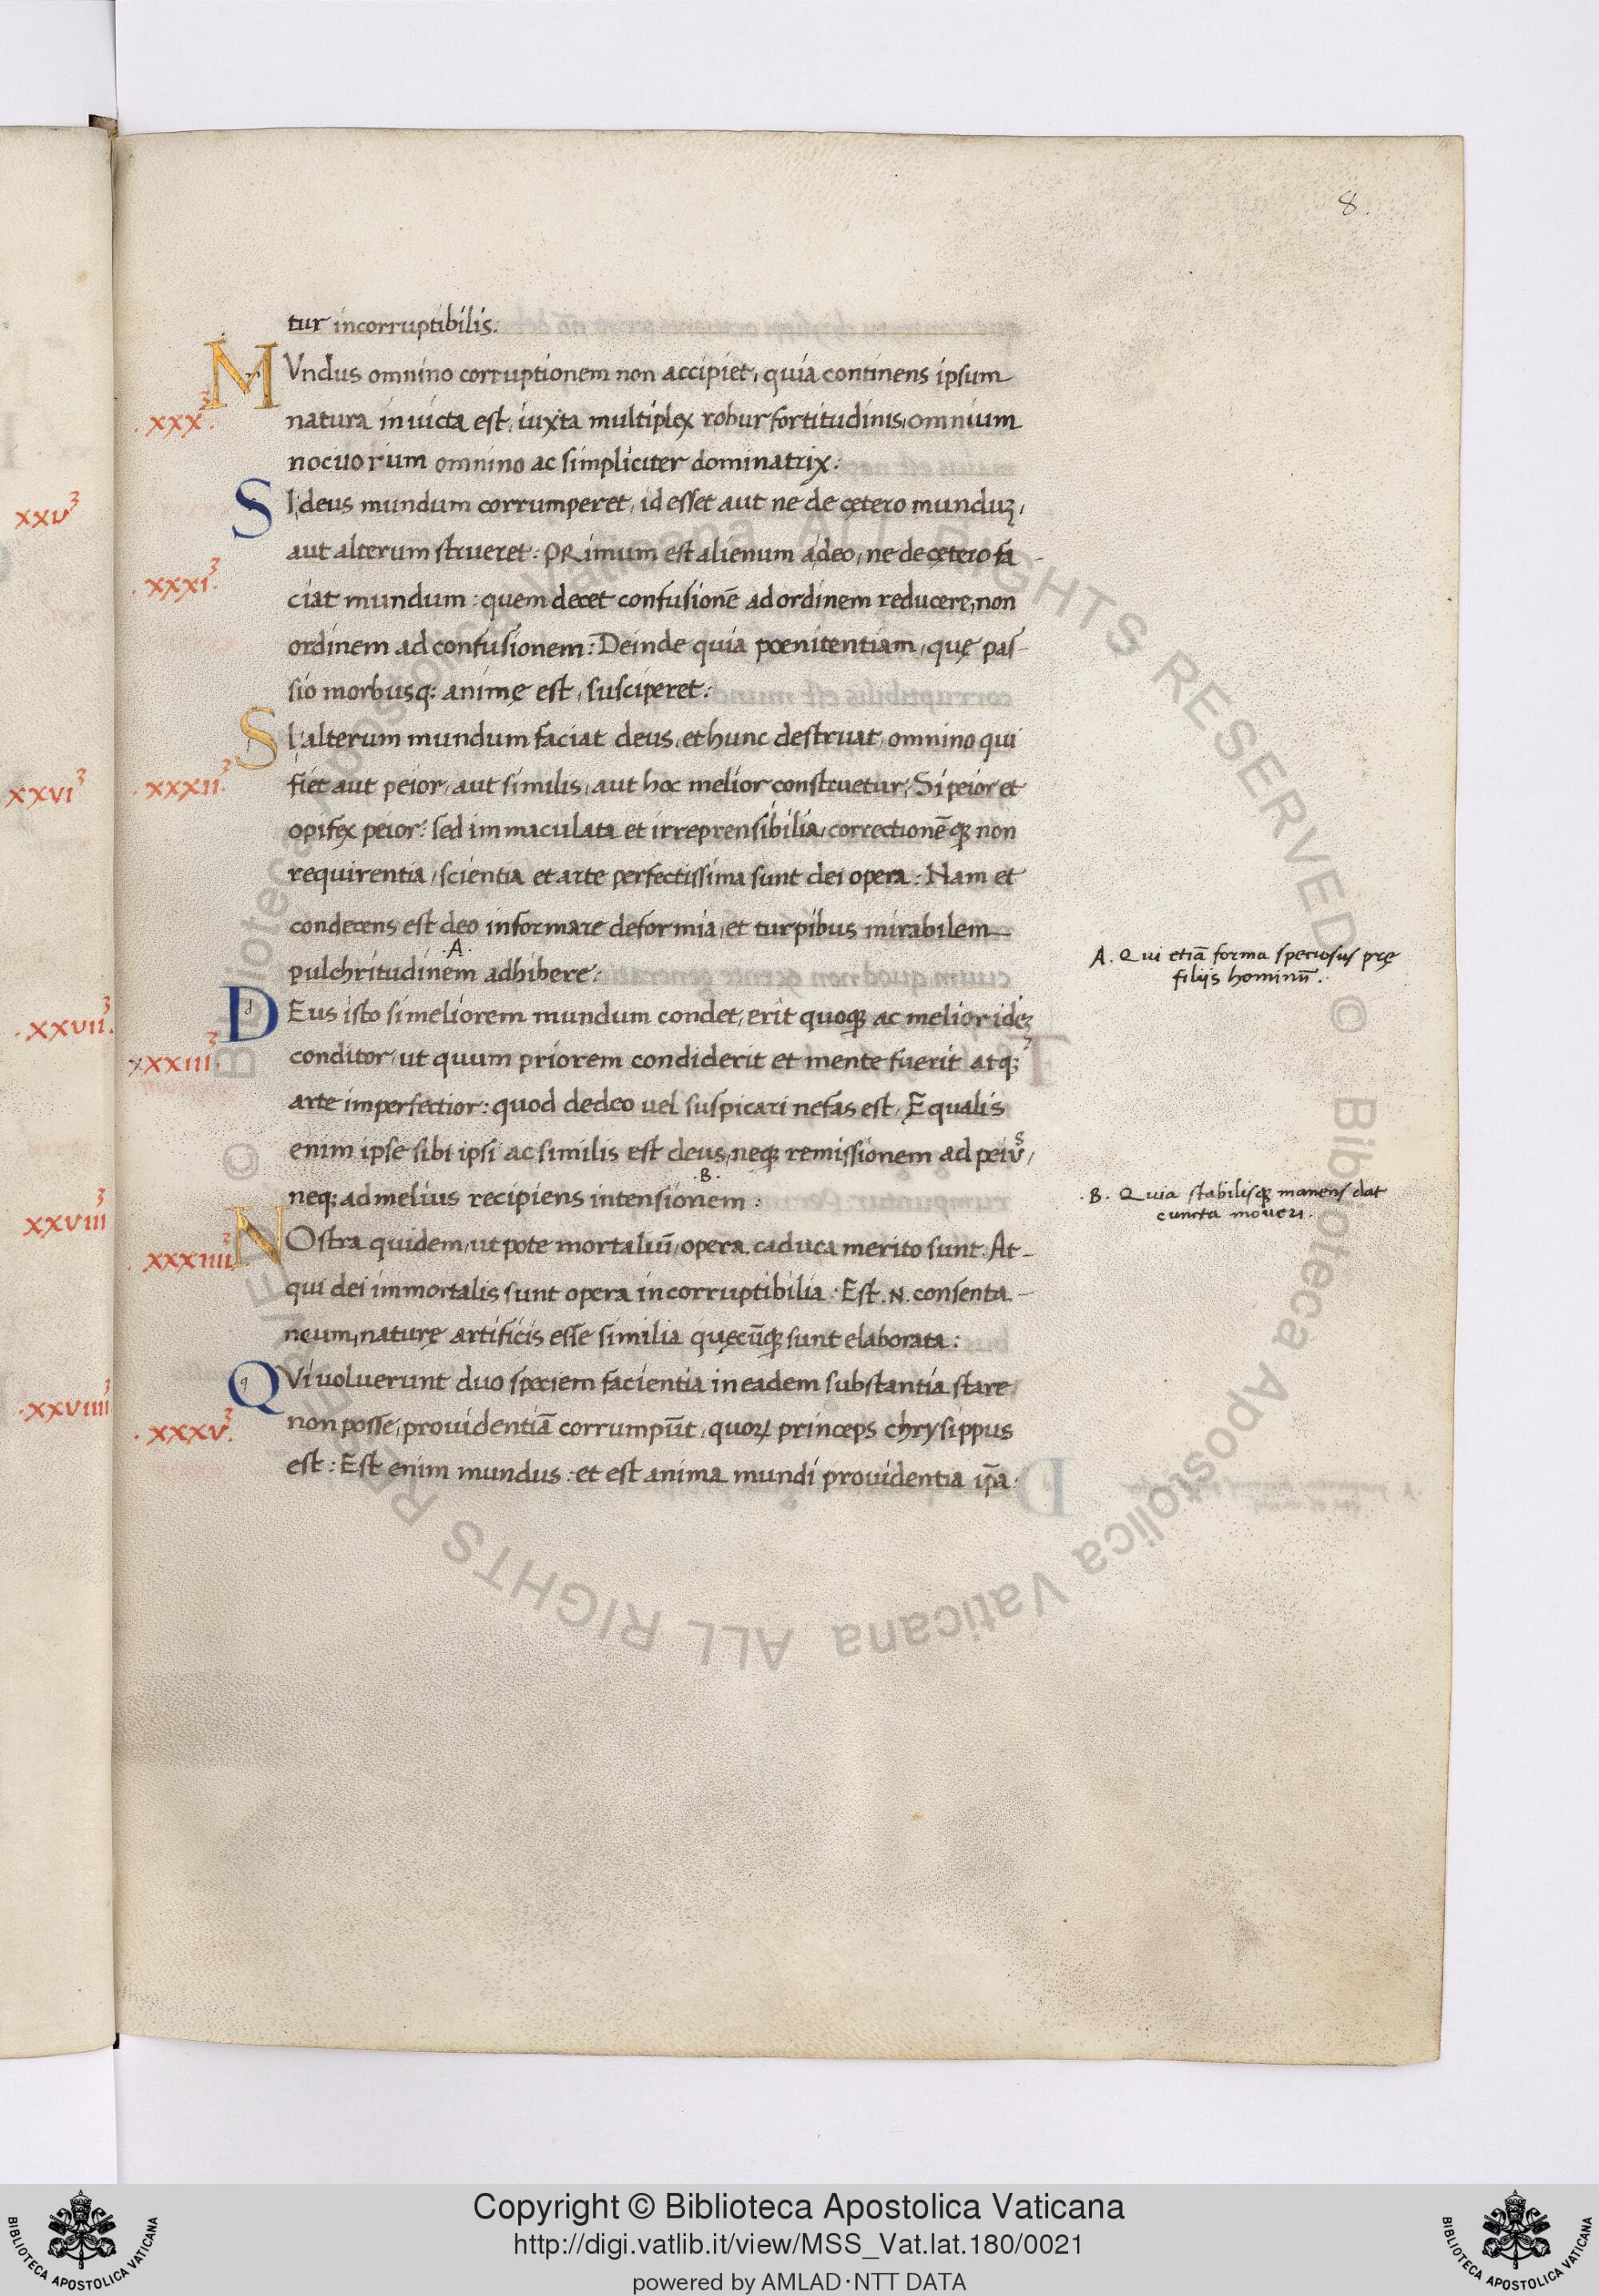 8.
tur incorruptibilis:
MVndus omnino corruptionem non accipiet, quia continens ipsum
.XXX.ꝫ
natura inuicta est, iuxta multiplex robur fortitudinis, omnium
nocuorum omnino ac simpliciter dominatrix:
SI deus mundum corrumperet, id esset aut ne de cętero munduꝫ,
XXVꝫ
aut alterum strueret: PRimum est alienum a deo, ne de cętero fa-
.XXXI.ꝫ
ciat mundum: quem decet confusionē ad ordinem reducere, non
ordinem ad confusionem: Deinde quia poenitentiam, quę pas-
sio morbusq; animę est, susciperet:
SI alterum mundum faciat deus, et hunc destruat, omnino qui
XXVIꝫ
.XXXII.ꝫ
fiet aut peior, aut similis, aut hoc melior construetur, Si peior et
opifex peior: sed immaculata et irreprensibilia, correctionēqꝫ non
requirentia, scientia et arte perfectissima sunt dei opera: Nam et
condecens est deo informare deformia, et turpibus mirabilem
.A.
pulchritudinem adhibere:
A. Qui etiā forma speciosus prę
filijs hominū.
DEus isto si meliorem mundum condet, erit quoqꝫ ac melior ideꝫ
.XXVII.ꝫ
XXXIII.ꝫ
conditor, ut quum priorem condiderit et mente fuerit atq;
arte imperfectior: quod de deo uel suspicari nefas est, Equalis
enim ipse sibi ipsi ac similis est deus, neqꝫ remissionem ad peiuˢ,
.B.
neq; ad melius recipiens intensionem:
.B. Quia stabilisqꝫ manens dat
cuncta moueri.
XXVIIIꝫ
NOstra quidem, utpote mortaliū, opera caduca merito sunt. At-
.XXXIIIIꝫ
qui dei immortalis sunt opera incorruptibilia. Est .N. consenta-
neum, naturę artificis esse similia quęcūqꝫ sunt elaborata:
QVi uoluerunt duo speciem facientia in eadem substantia stare
.XXVIIIIꝫ
non posse, prouidentiā corrumpūt, quoꝝ princeps chrysippus
.XXXV.ꝫ
est: Est enim mundus: et est anima mundi prouidentia ip̄a:
© Biblioteca Apostolica Vaticana ALL RIGHTS RESERVED © Biblioteca Apostolica Vaticana ALL RIGHTS RESERVED
Copyright © Biblioteca Apostolica Vaticana
http://digi.vatlib.it/view/MSS_Vat.lat.180/0021
powered by AMLAD·NTT DATA
BIBLIOTECA APOSTOLICA VATICANA
BIBLIOTECA APOSTOLICA VATICANA